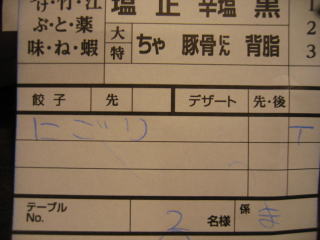 け・竹・江 塩 正 辛塩 黒
ぶ・と・薬 大 1
味・ね・蝦 特 ちゃ 豚骨にん 背脂 2
3
餃子 先 デザート 先・後
にごり T
テーブル No. 2 名様 係 き